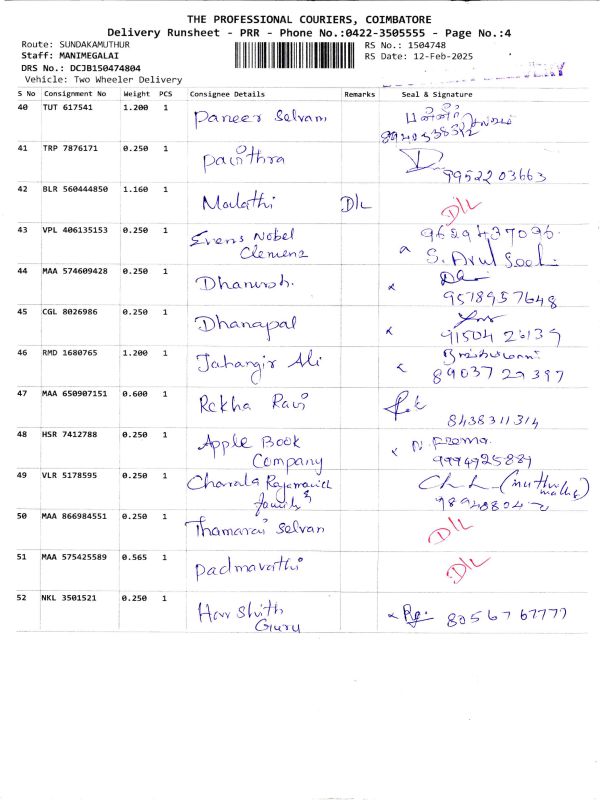 THE PROFESSIONAL COURIERS, COIMBATORE
Delivery Runsheet - PRR - Phone No.:0422-3505555 - Page No.:4
Route: SUNDAKAMUTHUR RS No.: 1504748
Staff: MANIMEGALAI RS Date: 12-Feb-2025
DRS No.: DCJB150474804
Vehicle: Two Wheeler Delivery
S No Consignment No Weight PCS Consignee Details Remarks Seal & Signature
40 TUT 617541 1.200 1 Paneer Selvam
41 TRP 7876171 0.250 1 Pavithra 9952203663
42 BLR 560444850 1.160 1 Malathi D/L D/L
43 VPL 406135153 0.250 1 Evens Nobel 9629437096
Clemenz S. Arul
44 MAA 574609428 0.250 1 Dhanush.
9578957648
45 CGL 8026986 0.250 1 Dhanapal
46 RMD 1680765 1.200 1 Jahangir Ali
89037 27397
47 MAA 650907151 0.600 1 Rekha Ravi
8438311314
48 HSR 7412788 0.250 1 Apple Book
Company 9994925889
49 VLR 5178595 0.250 1 Charala
family
50 MAA 866984551 0.250 1 Thamarai Selvan D/L
51 MAA 575425589 0.565 1 Padmavathi D/L
52 NKL 3501521 0.250 1 Harshith 80567 67777
Guru